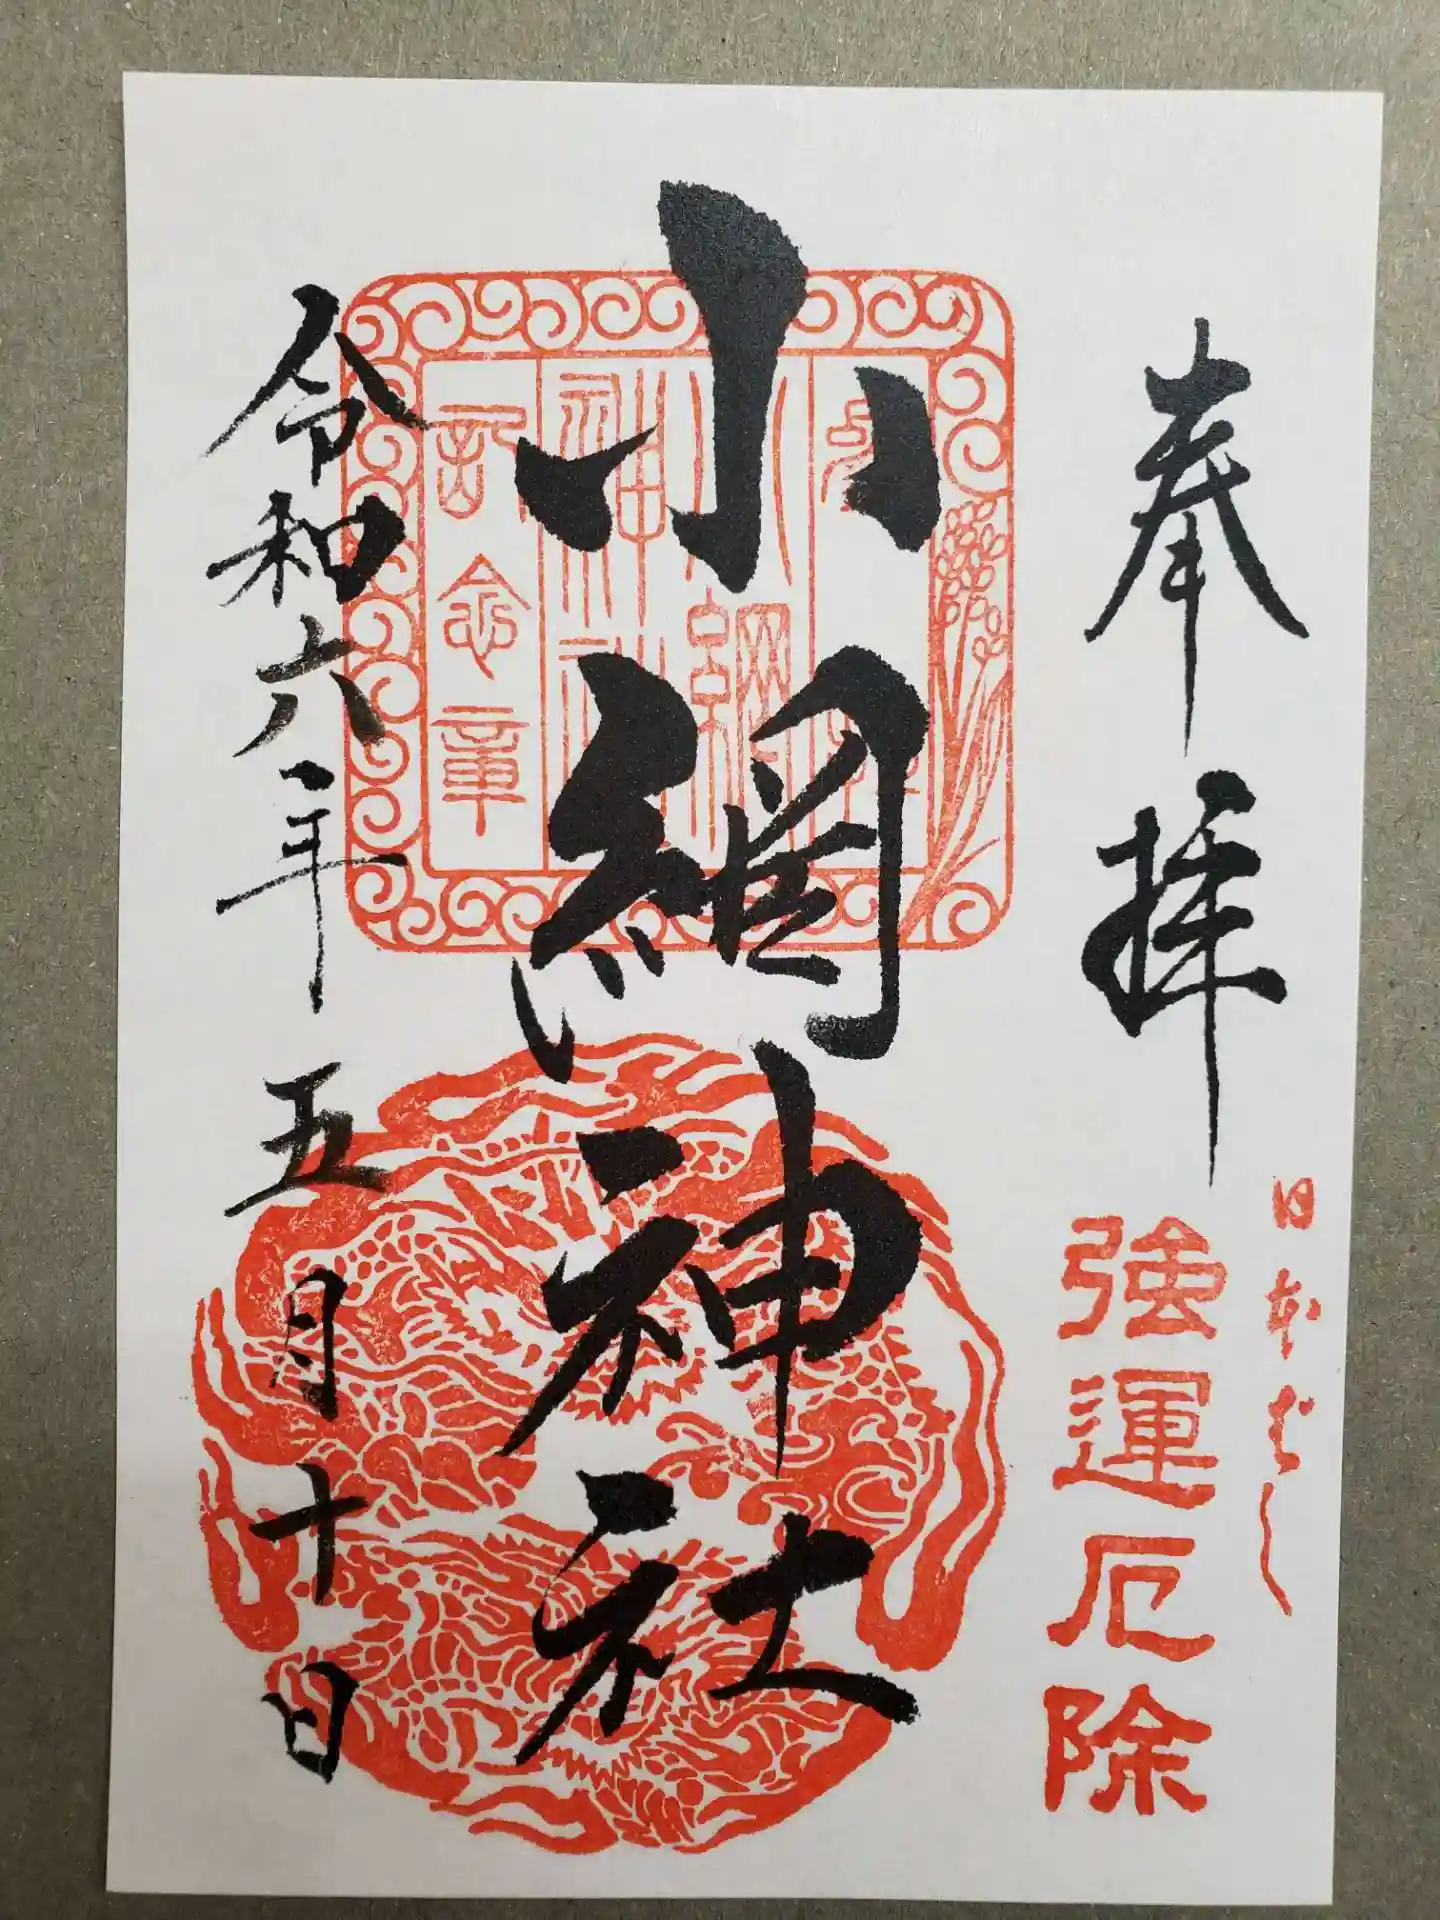 奉拝
日本橋
強運厄除
小網神社
参拝
小網
神社
記念章
令和六年五月十日